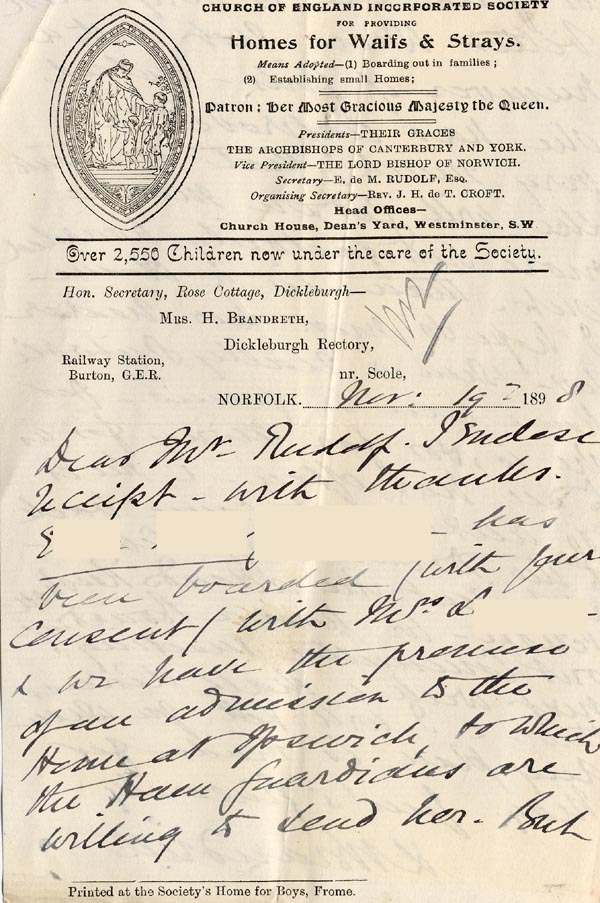 CHURCH OF ENGLAND INCORPORATED SOCIETY
FOR PROVIDING
Homes for Waifs & Strays.
Means Adopted—(1) Boarding out in families;
(2) Establishing small Homes;
Patron: Her Most Gracious Majesty the Queen.
Presidents—THEIR GRACES
THE ARCHBISHOPS OF CANTERBURY AND YORK.
Vice President—THE LORD BISHOP OF NORWICH.
Secretary—E. de M. RUDOLF, Esq.
Organising Secretary—Rev. J. H. de T. CROFT.
Head Offices—
Church House, Dean's Yard, Westminster, S.W
Over 2,550 Children now under the care of the Society.
Hon. Secretary, Rose Cottage, Dickleburgh—
Mrs. H. Brandreth,
Dickleburgh Rectory,
Railway Station,
Burton, G.E.R.
nr. Scole,
NORFOLK. Nov: 19th 1898
Dear Mr Rudolf. I enclose
receipt - with thanks.
E - has
been boarded (with your
consent) with Mrs L -
& we have the promise
of an admission to the
Home at Ipswich, to which
the Ham Guardians are
willing to send her. But
Printed at the Society's Home for Boys, Frome.